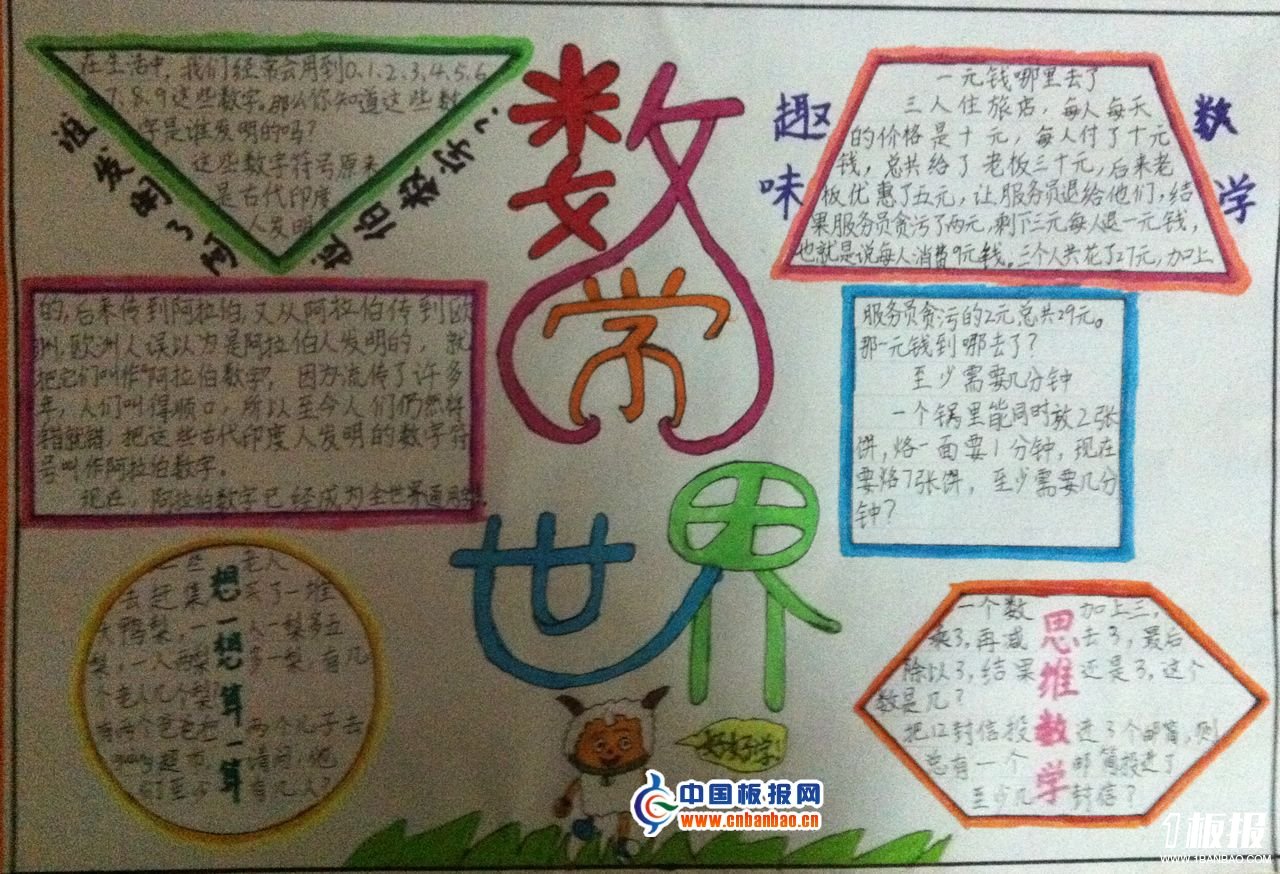 数学世界
谁发明了阿拉伯数字?
在生活中,我们经常会用到0.1.2.3.4.5.6
7.8.9这些数字。那么你知道这些数
字是谁发明的吗?
这些数字符号原来
是古代印度
人发明
的,后来传到阿拉伯,又从阿拉伯传到欧
洲,欧洲人误以为是阿拉伯人发明的,就
把它们叫作“阿拉伯数字”,因为流传了许多
年,人们叫得顺口,所以至今人们仍然将
错就错,把这些古代印度人发明的数字符
号叫作阿拉伯数字。
现在,阿拉伯数字已经成为全世界通用
想一想算一算
老人
去赶集 买了一堆
大鸭梨,一人一梨多五
梨,一人两梨 多一梨,有几
个老人几个梨
有两个爸爸和 两个儿子去
guang超市, 请问,他
们至少 有几人?
好好学!
趣味数学
一元钱哪里去了
三人住旅店,每人每天
的价格是十元,每人付了十元
钱,总共给了老板三十元,后来老
板优惠了五元,让服务员退给他们,结
果服务员贪污了两元,剩下三元每人退一元钱,
也就是说每人消费9元钱。三个人共花了27元,加上
服务员贪污的2元总共29元。
那一元钱到哪去了?
至少需要几分钟
一个锅里能同时放2张
饼,烙一面要1分钟,现在
要烙7张饼,至少需要几分
钟?
思维数学
一个数 加上三,
乘3,再减 去3,最后
除以3,结果 还是3,这个
数是几?
把12封信投 进3个邮筒,则
总有一个 邮筒投进了
至少几 封信?
中国板报网
www.cnbanbao.cn
1板报
WWW.1BANBAO.COM